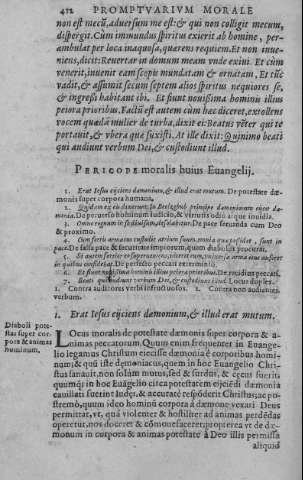 412 PROMPTVARIVM MORALE
non est mecũ, aduersum me est: & qui non colligit mecum,
dispergit. Cùm immundus spiritus exierit ab homine, per-
ambulat per loca inaquosa, quærens requiem. Et non inue-
niens, dicit: Reuertar in domum meam vnde exiui. Et cùm
venerit, inuenit eam scopis mundatam & ornatam. Et tũc
vadit, & assumit secum septem alios spiritus nequiores se,
& ingressi habitant ibi. Et sunt nouissima hominis illius
peiora prioribus. Factũ est autem cùm hæc diceret, extollens
vocem quædã mulier de turba, dixit ei: Beatus vẽter qui te
portauit, & vbera quæ suxisti. At ille dixit: Quinimo beati
qui audiunt verbum Dei, & custodiunt illud.
PERICOPE moralis huius Euangelij.
1. Erat Iesus eijciens dæmonium, & illud erat mutum. De potestate dæ-
monis super corpora humana.
2. Quidam ex eis dixerunt: In Beelzebub principe dæmoniorum eijcit dæ-
monia. De peruerso hominum iudicio, & virtutis odio atque inuidia.
3. Omne regnum in seipsum diuisum desolabitur. De pace secunda cum Deo
& proximo.
4. Cum fortis armatus custodit atrium suum, omnia quæ possidet, sunt in
pace. De falsa pace & securitate impiorum, quam diabolus procurat.
5. Si autem fortior eo superueniens vicerit eum, vniuersa arma eius auferet
in quibus confidebat. De perfecto peccati exterminio.
6. Et sunt nouissima hominis illius peiora prioribus. De recidiua peccati.
7. Beati qui audiunt verbum Dei, & custodiunt illud. Locus duplex.
1. Contra auditores verbi infructuosos. 2. Contra non audientes
verbum.
1. Erat Iesus eijciens dæmonium, & illud erat mutum.
Diaboli pote
stas super cor
pora & animas
hominum.
LOcus moralis de potestate dæmonis super corpora & a-
nimas peccatorum. Quum enim frequenter in Euange-
lio legamus Christum eiecisse dæmonia è corporibus homi-
num; & quũ iste dæmoniacus, quem in hoc Euangelio Chri-
stus sanauit, non solùm mutus, sed & surdus, & cæcus fuerit:
quumq; in hoc Euãgelio citca potestatem eijciẽdi dæmonia
cauillati fuerint Iudæi, & accuratè respõderit Christus; ac po-
stremò, quum ideo hominũ corpora à dæmone vexari Deus
permittat, vt, quã violenter & hostiliter ad animas perdẽdas
operetur, nos doceret & cõmouefaceret: propterea vt de dæ-
monum in corpora & animas potestate à Deo illis permissa
aliquid